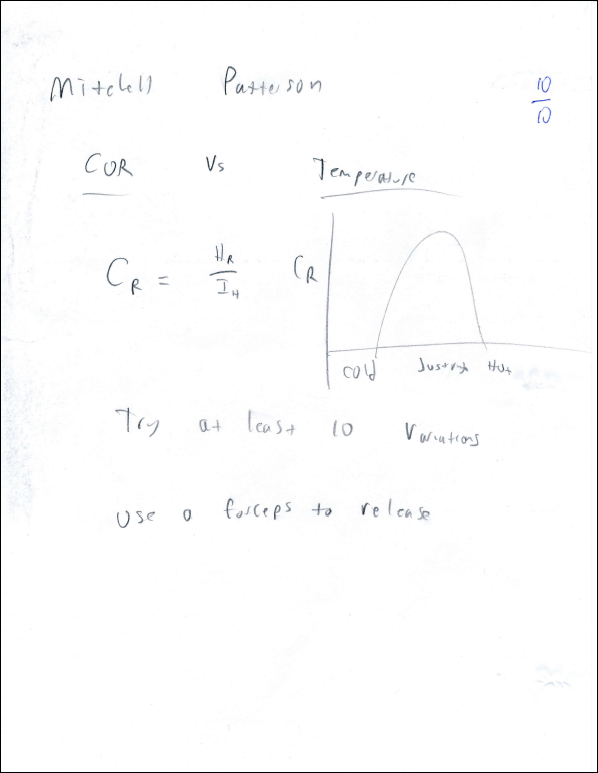 Mitchell Patterson
10
10
COR Vs Temperature
C_R = H_R / I_H
C_R
Cold Just right Hot
Try at least 10 Variations
use a forceps to release